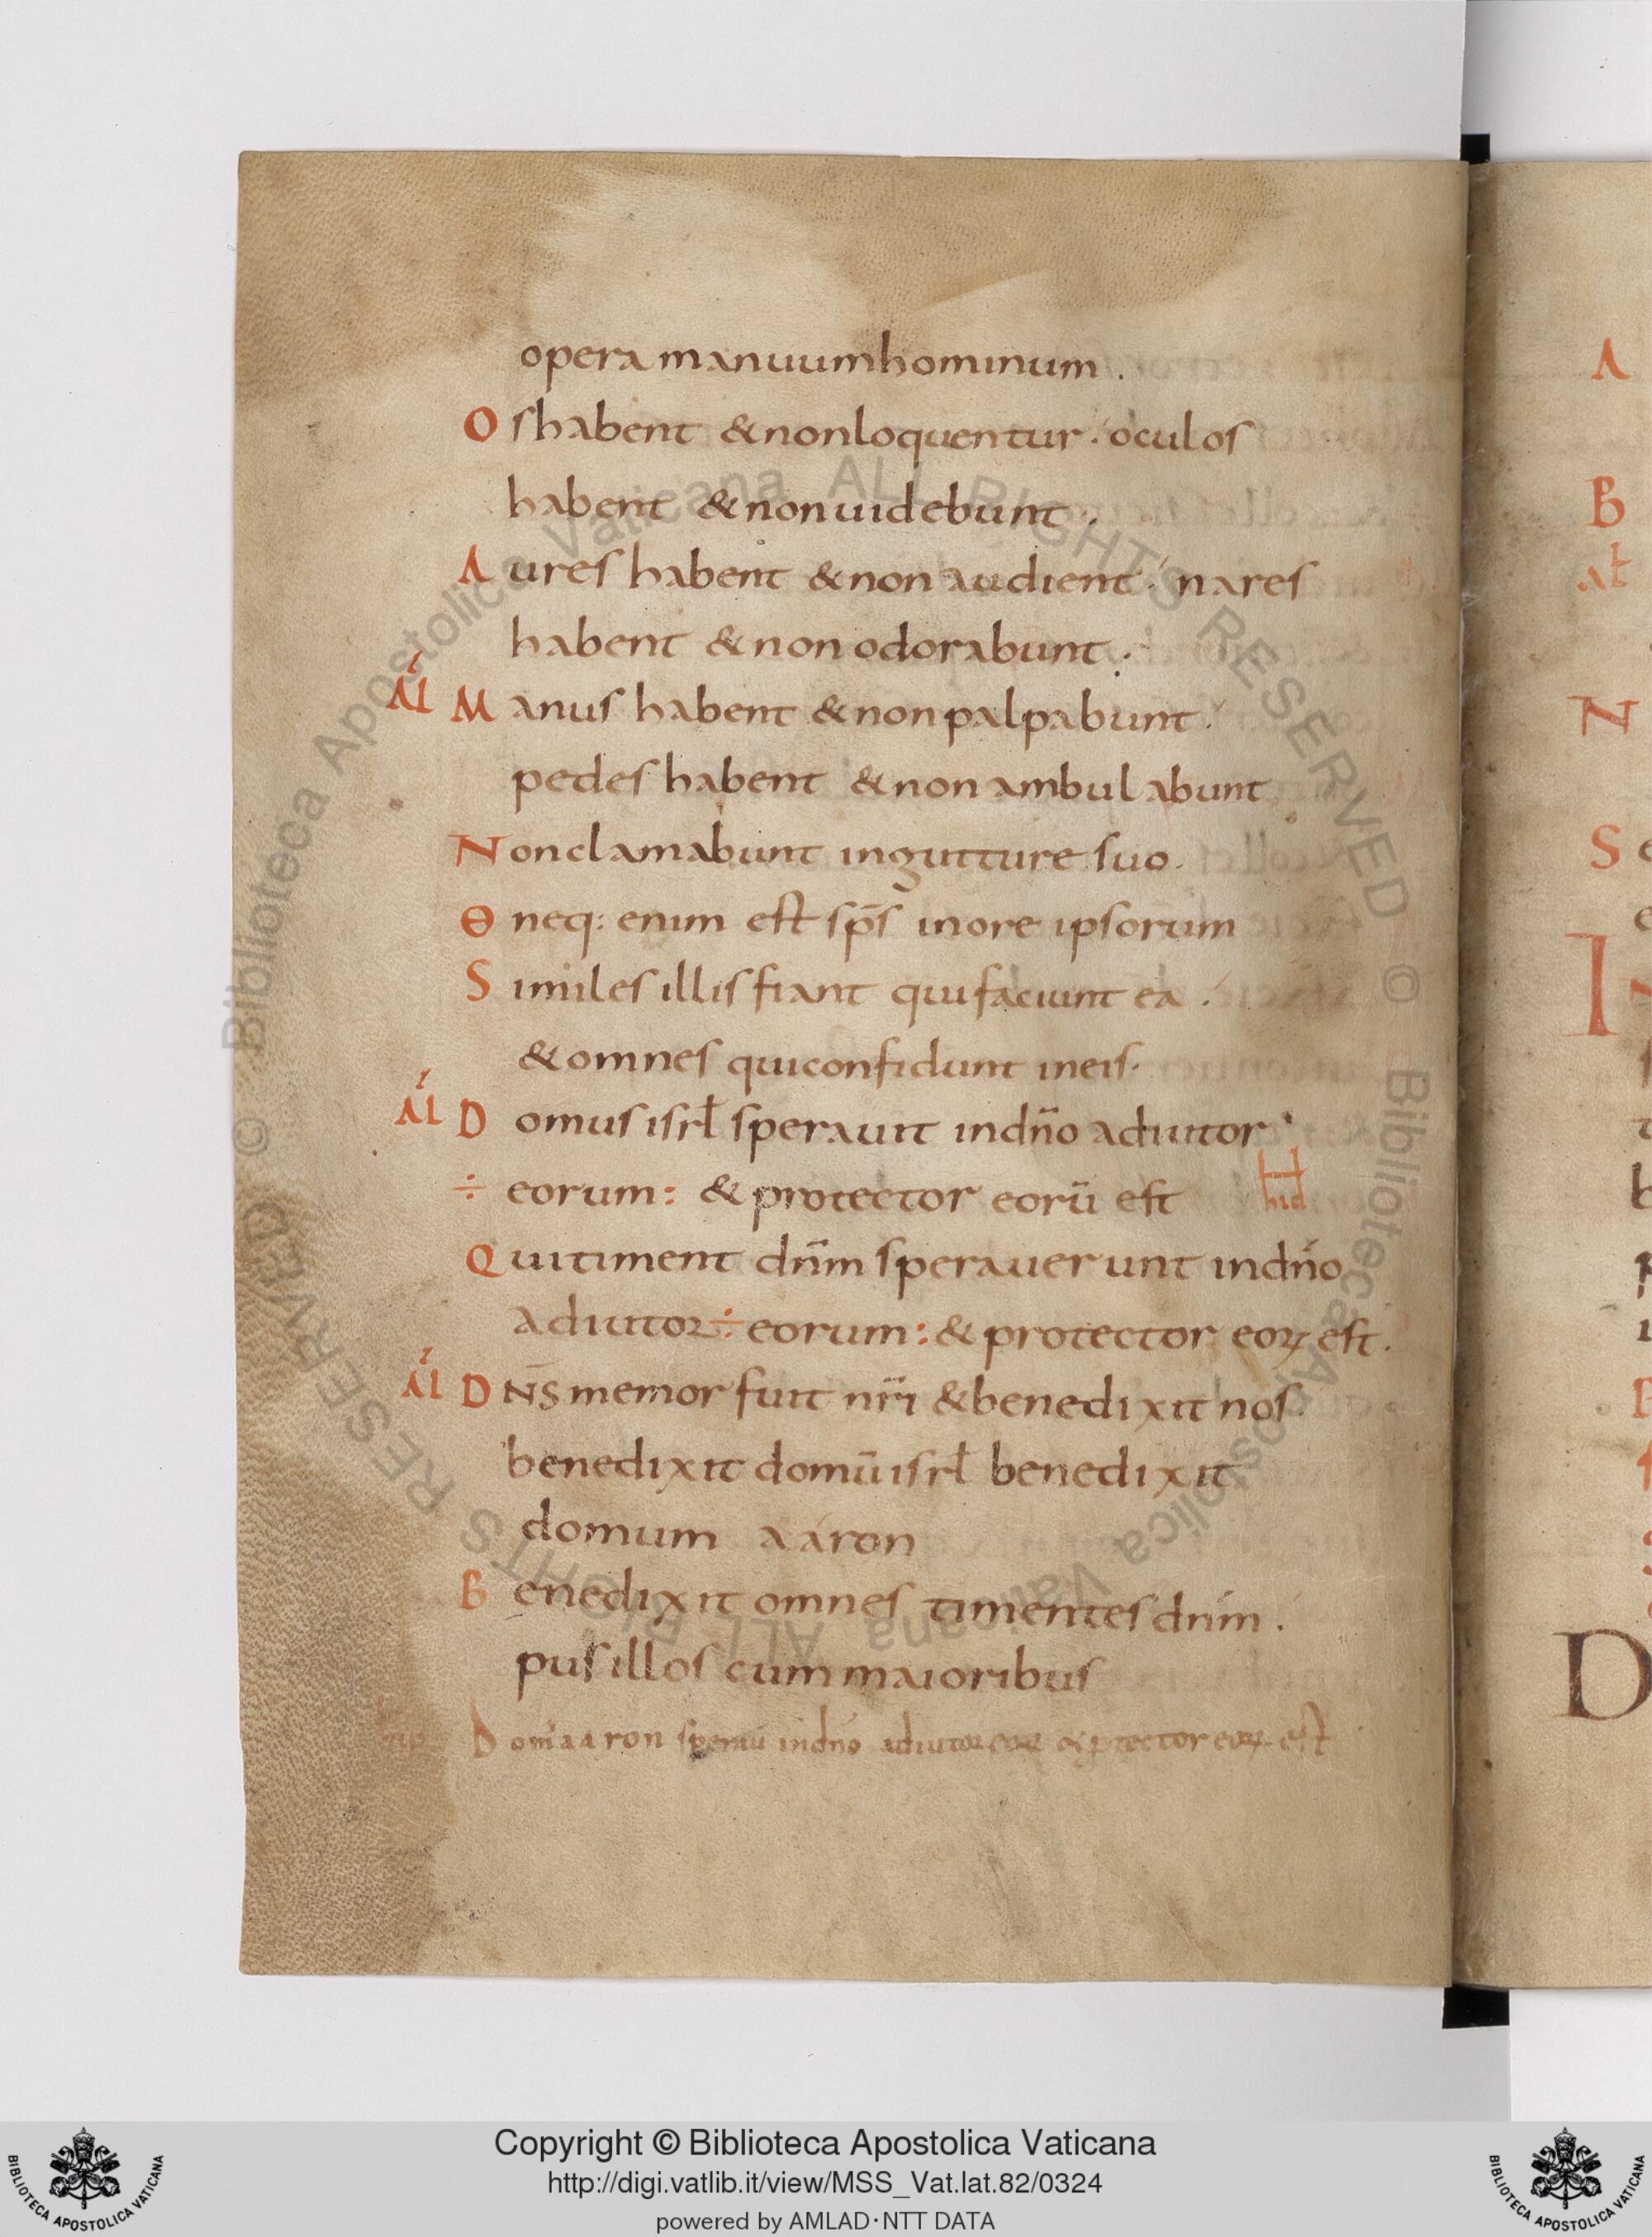 opera manuum hominum .
O s habent & non loquentur · oculos
habent & non uidebunt .
A ures habent & non audient · nares
habent & non odorabunt .
Al M anus habent & non palpabunt .
pedes habent & non ambulabunt
N on clamabunt in gutture suo .
Θ neq: enim est sp̄s in ore ipsorum
S imiles illis fiant qui faciunt ea .
& omnes qui confidunt in eis .
Al D omus isrł sperauit in dn̄o adiutor
÷ eorum : & protector eorū est
Q ui timent dn̄m sperauerunt in dn̄o
adiutor ÷ eorum : & protector eoꝝ est .
Al D N̄S memor fuit nr̄i & benedixit nos
benedixit domū isrł benedixit
domum aaron
B enedixit omnes timentes dn̄m .
pusillos cum maioribus
D om̄ aaron speraū in dn̄o adiutor eoꝝ & ꝓtector eoꝝ est
A
B
N
S
I
D
© Biblioteca Apostolica Vaticana ALL RIGHTS RESERVED © Biblioteca Apostolica Vaticana ALL RIGHTS RESERVED
Copyright © Biblioteca Apostolica Vaticana
http://digi.vatlib.it/view/MSS_Vat.lat.82/0324
powered by AMLAD·NTT DATA
BIBLIOTECA APOSTOLICA VATICANA
BIBLIOTECA APOSTOLICA VATICANA